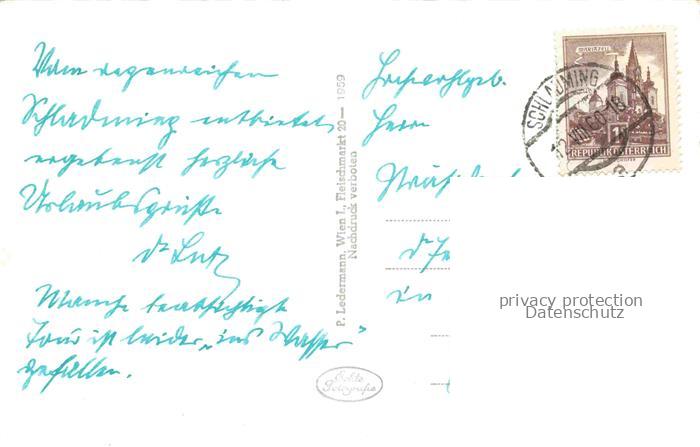 Vom regenreichen
Schladming entbietet
ergebenst herzliche
Urlaubsgrüße
Dr Lutz
Manche beabsichtigte
Tour ist leider „ins Wasser"
gefallen.
P. Ledermann, Wien I., Fleischmarkt 20 — 1959
Nachdruck verboten
Echte
Fotografie
Hochwohlgeb.
Herrn
in
MARIAZELL
SCHLADMING
REPUBLIK ÖSTERREICH
privacy protection
Datenschutz